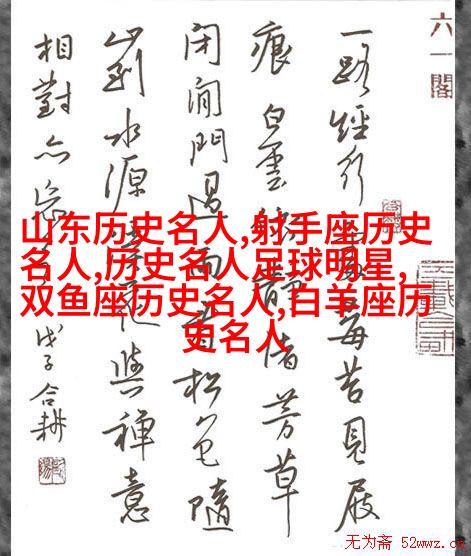 六一閣
一路經行處莓苔見屐
痕白雲依靜渚芳草
閉閒門過雨看松色隨
山到水源溪花與禪意
相對亦忘言戊子合耕
山东历史名人,射手座历史
名人,历史名人足球明星,
双鱼座历史名人,白羊座历
史名人
无为斋 52wwz.c